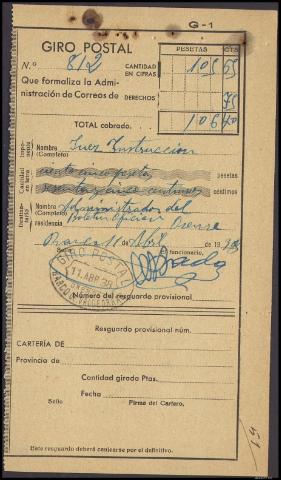 G-1
GIRO POSTAL
CANTIDAD EN CIFRAS
PESETAS CTS
N.º 812
105 65
Que formaliza la Administración de Correos de
DERECHOS
75
TOTAL cobrado.
106 40
Imponente
Nombre (Completo) Juez Instruccion
Cantidad en letra
ciento cinco pesetas
pesetas
sesenta y cinco centimos
céntimos
Destinatario
Nombre (Completo) Administrador del
Boletin Oficial
residencia
Orense
Barco 11 de Abril de 1938
El funcionario,
GIRO POSTAL
11 ABR 38
BARCO DE VALDEORRAS
Número del resguardo provisional
Resguardo provisional núm.
CARTERÍA DE
Provincia de
Cantidad girada Ptas.
Fecha
Sello
Firma del Cartero.
Este resguardo deberá canjearse por el definitivo.